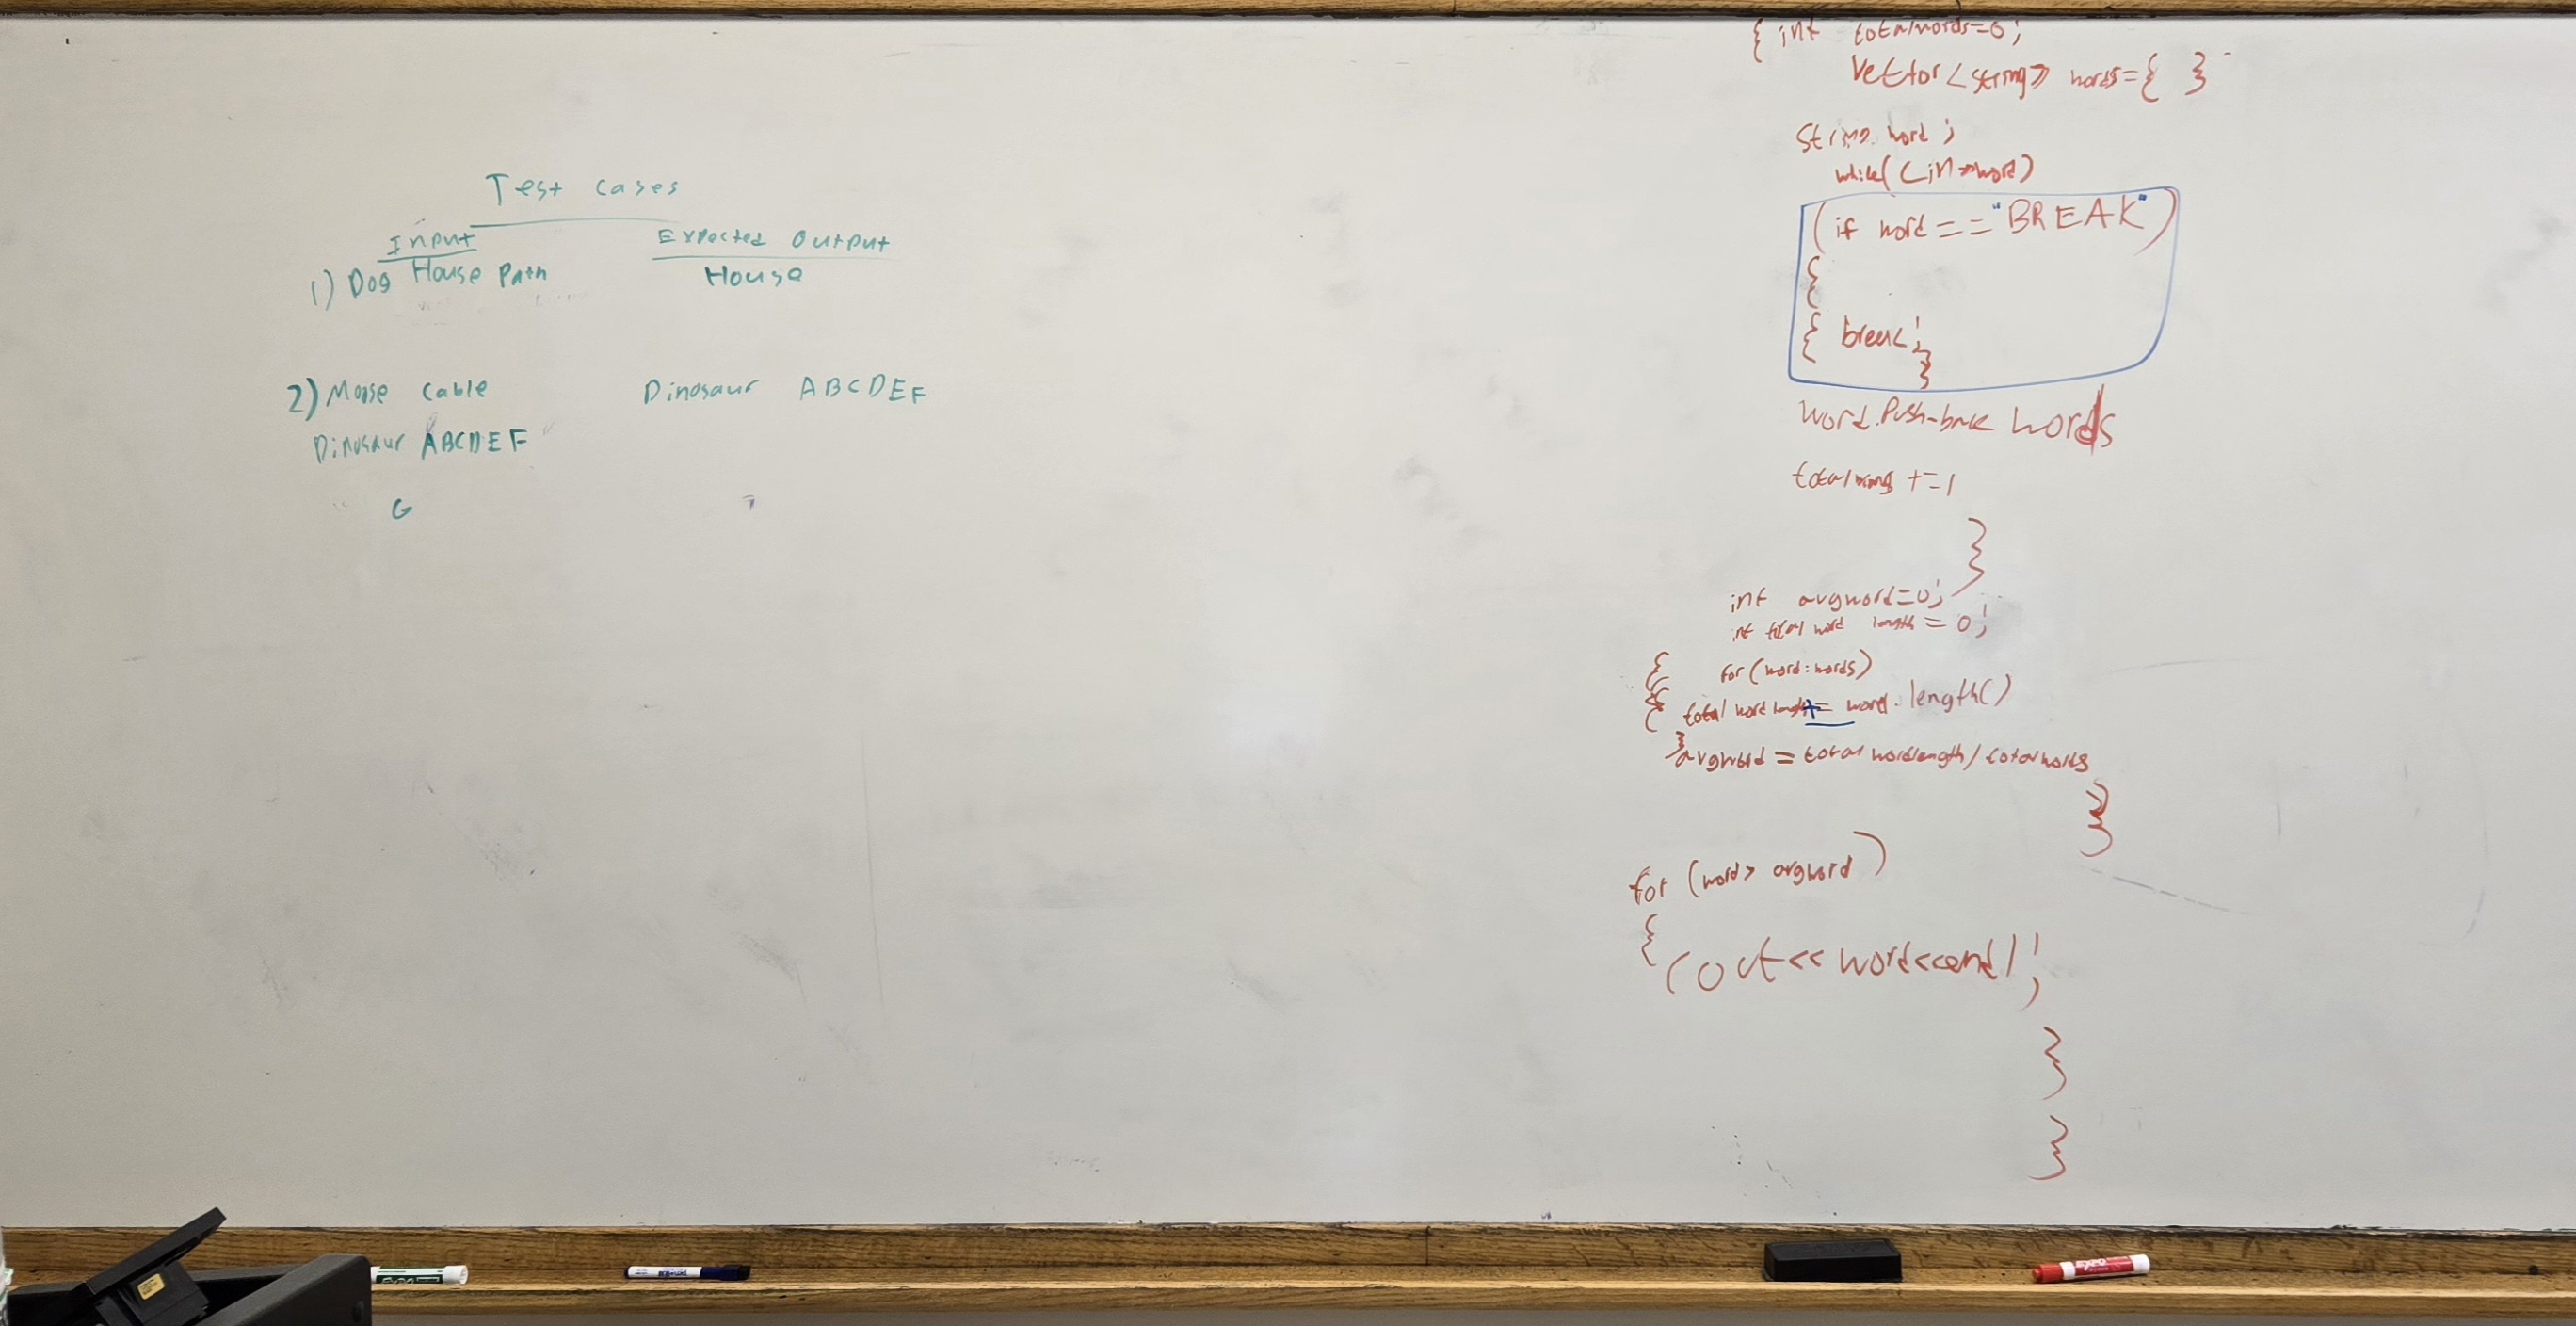 Test cases
Input Expected Output
1) Dog House Path House
2) Mouse Cable Dinosaur ABCDEF
Dinosaur ABCDEF
G
{ int totalwords=0;
Vector<string> words={ }
string word;
while(cin>>word)
(if word =="BREAK")
{
{ break;
}
word.Push-back words
+=1
}
int avgword=0;
int total word length = 0;
{ for (word:words)
{ total word length += word.length()
}
avgword = total wordlength/totalwords
}
for (word> avgword)
{
cout<<word<<endl;
}
}
EXPO